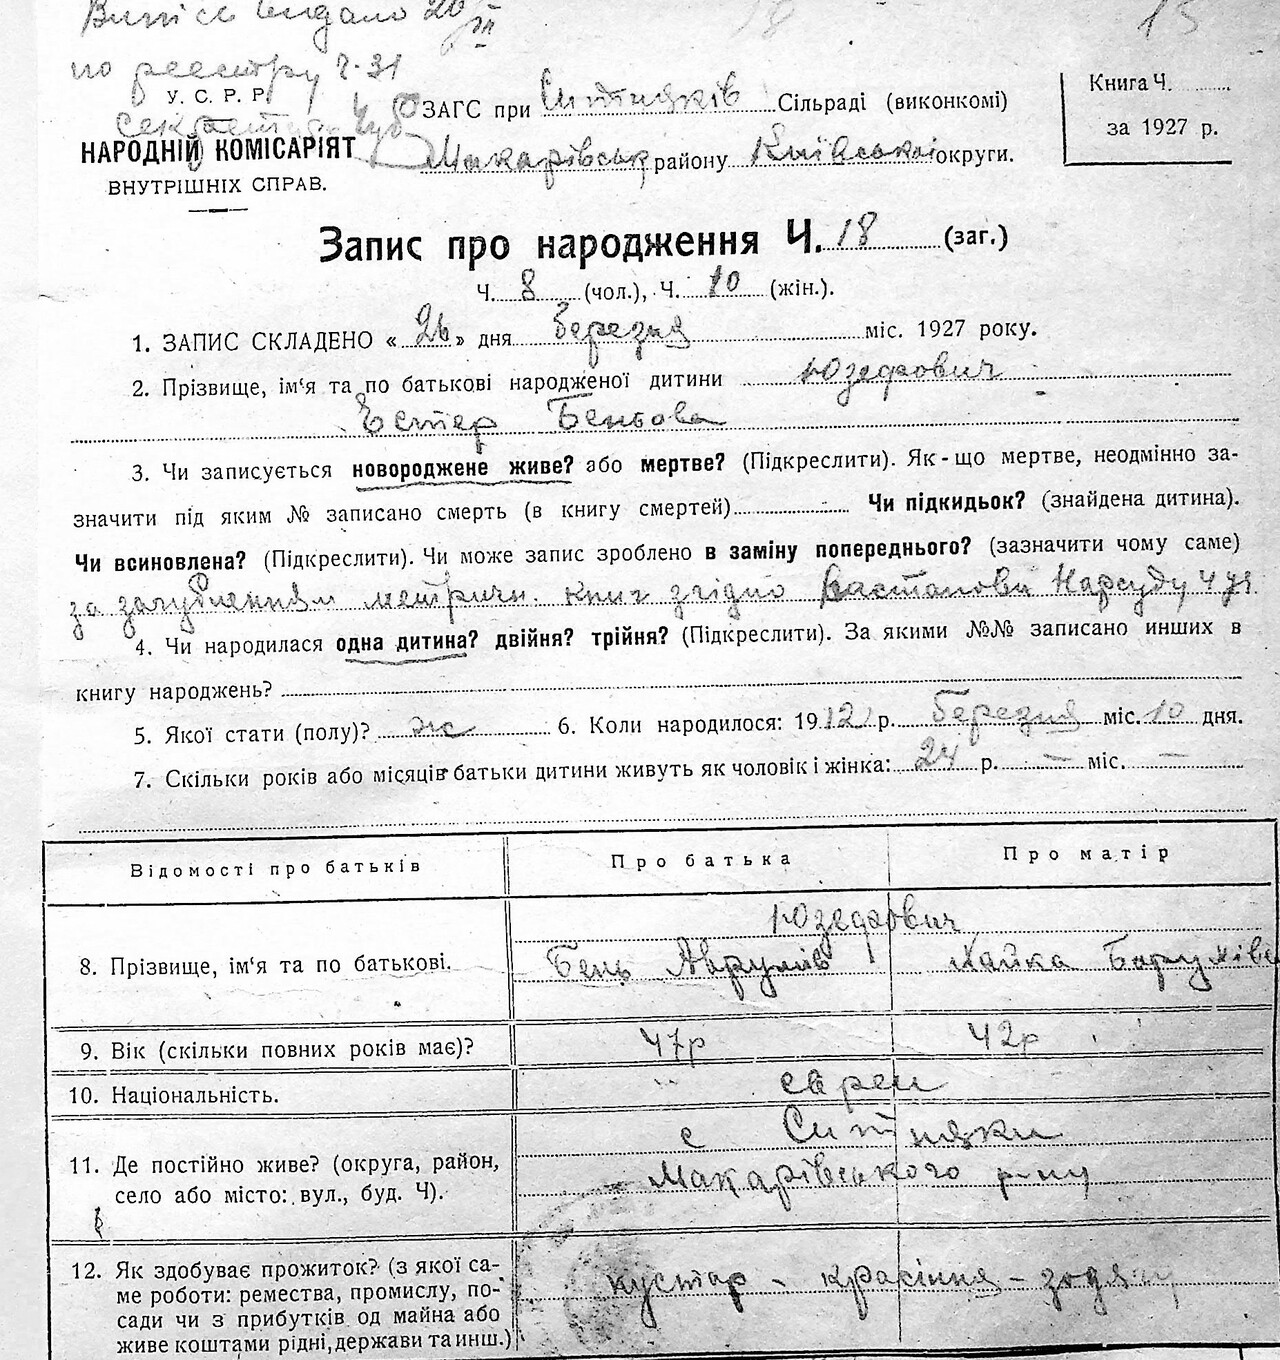 Випис видано 20/III
по реестру ч. 31
18
15
У. С. Р. Р.
Секретар
НАРОДНІЙ КОМІСАРІЯТ
ВНУТРІШНІХ СПРАВ.
ЗАГС при Ситняків Сільраді (виконкомі)
Макарівськ району Київської округи.
Книга Ч.
за 1927 р.
Запис про народження Ч. 18 (заг.)
Ч. 8 (чол.), Ч. 10 (жін.).
1. ЗАПИС СКЛАДЕНО « 26 » дня березня міс. 1927 року.
2. Прізвище, ім'я та по батькові народженої дитини Юзефович
Естер Беньова
3. Чи записується новороджене живе? або мертве? (Підкреслити). Як-що мертве, неодмінно за-
значити під яким № записано смерть (в книгу смертей) Чи підкидьок? (знайдена дитина).
Чи всиновлена? (Підкреслити). Чи може запис зроблено в заміну попереднього? (зазначити чому саме)
за загубленням метричн. книг згідно Постанови Нарсуду 4 уч.
4. Чи народилася одна дитина? двійня? трійня? (Підкреслити). За якими №№ записано инших в
книгу народжень?
5. Якої стати (полу)? жс 6. Коли народилося: 1912 р. березня міс. 10 дня.
7. Скільки років або місяців батьки дитини живуть як чоловік і жінка: 24 р. — міс. —
Відомості про батьків
Про батька
Про матір
8. Прізвище, ім'я та по батькові.
Юзефович
Бень Аврумів
Хайка Барумівн
9. Вік (скільки повних років має)?
47р
42р
10. Національність.
євреи
11. Де постійно живе? (округа, район,
село або місто: вул., буд. Ч).
с Ситняки
Макарівського р-ну
12. Як здобуває прожиток? (з якої са-
ме роботи: ремества, промислу, по-
сади чи з прибутків од майна або
живе коштами рідні, держави та инш.)
кустар - красіння -